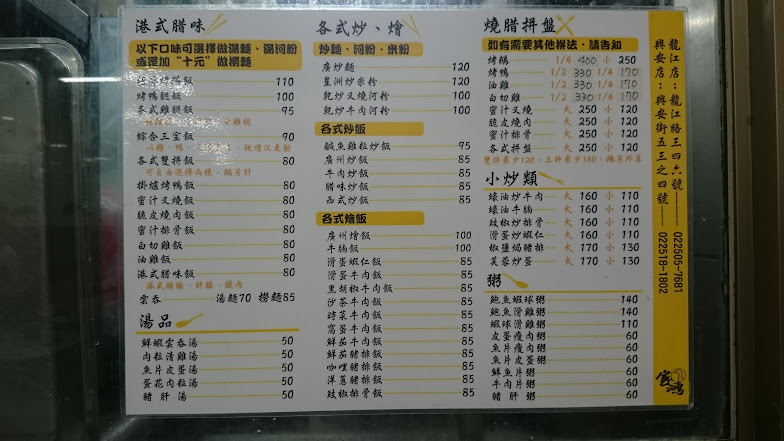 港式腊味
以下口味可選擇做湯麵、湯河粉
或是加“十元”做撈麵
110
烤鴨腿飯 100
各式雞腿飯 95
綜合三寶飯 90
各式雙拼飯 80
可自由選擇兩樣、鵝另計
掛爐烤鴨飯 80
蜜汁叉燒飯 80
脆皮燒肉飯 80
蜜汁排骨飯 80
白切雞飯 80
油雞飯 80
港式腊味飯 80
港式腊腸、肝腸、臘肉
雲吞 湯麵70 撈麵85
湯品
鮮蝦雲吞湯 50
肉粒清雞湯 50
魚片皮蛋湯 50
蛋花肉粒湯 50
豬肝湯 50
各式炒、燴
炒麵、河粉、米粉
廣炒麵 120
星洲炒米粉 120
乾炒叉燒河粉 100
乾炒牛肉河粉 100
各式炒飯
鹹魚雞粒炒飯 95
廣州炒飯 85
牛肉炒飯 85
腊味炒飯 85
西式炒飯 85
各式燴飯
廣州燴飯 100
牛腩飯 100
滑蛋蝦仁飯 85
滑蛋牛肉飯 85
黑胡椒牛肉飯 85
沙茶牛肉飯 85
時菜牛肉飯 85
窩蛋牛肉飯 85
鮮茄牛肉飯 85
鮮茄豬排飯 85
咖哩豬排飯 85
洋蔥豬排飯 85
豉椒排骨飯 85
燒腊拼盤
如有需要其他辦法，請告知
烤鵝 1/4 400 小 250
烤鴨 1/2 330 1/4 170
油雞 1/2 330 1/4 170
白切雞 1/2 330 1/4 170
蜜汁叉燒 大 250 小 120
脆皮燒肉 大 250 小 120
蜜汁排骨 大 250 小 120
各式拼盤 大 250 小 120
雙拼最少120、三拼最少180、鵝另外算
小炒類
蠔油炒牛肉 大 160 小 110
蠔油牛腩 大 160 小 110
豉椒炒排骨 大 160 小 110
滑蛋炒蝦仁 大 160 小 110
椒鹽焗豬排 大 170 小 130
芙蓉炒蛋 大 170 小 130
粥
鮑魚蝦球粥 140
鮑魚滑雞粥 140
蝦球滑雞粥 110
皮蛋瘦肉粥 60
魚片瘦肉粥 60
魚片皮蛋粥 60
鮮魚片粥 60
牛肉片粥 60
豬肝粥 60
龍江店：龍江路三四六號 022505-7681
興安店：興安街五三之四號 022518-1802